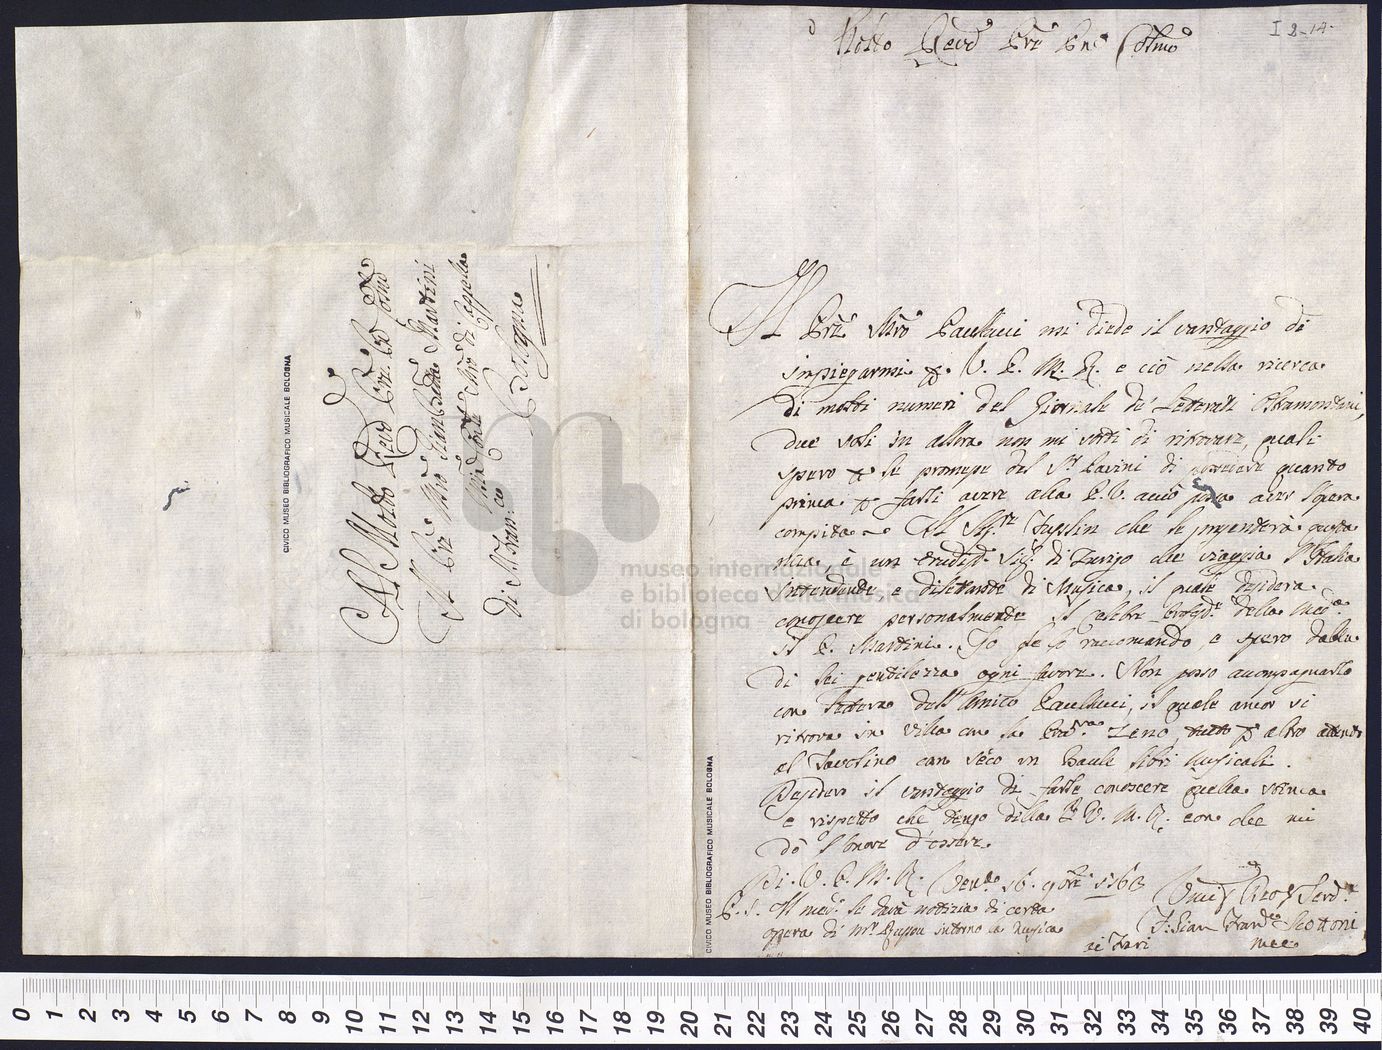 I 2-14.
Molto Revd.º Prē Pnē Colmo
Il Prē Mrō Paulucci mi diede il vantaggio di
impiegarmi p V. P. M. R. e ciò nella ricerca
di molti numeri del Giornale de' Letterati Oltramontani,
due soli in allora non mi sortì di ritrovare, quali
spero p le promesse del Sr. Pavini di quanto
prima p farli avere alla P. V. acciò possa aver l'opera
compita. Il Sigre. che le presenterà questa
mia è un erudito Sigr. di Zurigo che viaggia l'Italia
Intendente e dilettante di Musica, il quale desidera
conoscere personalmente il celebre della
il P. Martini. Io le lo raccomando, e spero dalla
di lei gentilezza ogni favore. Non posso accompagnarlo
con lettera dell'Amico Paulucci, il quale ancor si
ritrova in Villa con la Zeno, p altro
al Tavolino con seco un Baule libri musicali.
Desidero il vantaggio di farle conoscere quella stima
e rispetto che tengo della P. V. M. R. con che mi
dò l'onore d'essere
Di. V. P. M. R. Vena. 16. 9bre 1763
P. S. Il medo. le darà notizia di certa
opera di Mr. intorno a musica
Servo
F. Gian Frano. Scottoni
ai Frari
Al Molto Revd.
Il Prē Mrō Gian Batta Martini
Mrō di Cappella
di S. Fran.co
Bologna
CIVICO MUSEO BIBLIOGRAFICO MUSICALE BOLOGNA
CIVICO MUSEO BIBLIOGRAFICO MUSICALE BOLOGNA
museo internazionale
e biblioteca della musica
di bologna
0 1 2 3 4 5 6 7 8 9 10 11 12 13 14 15 16 17 18 19 20 21 22 23 24 25 26 27 28 29 30 31 32 33 34 35 36 37 38 39 40